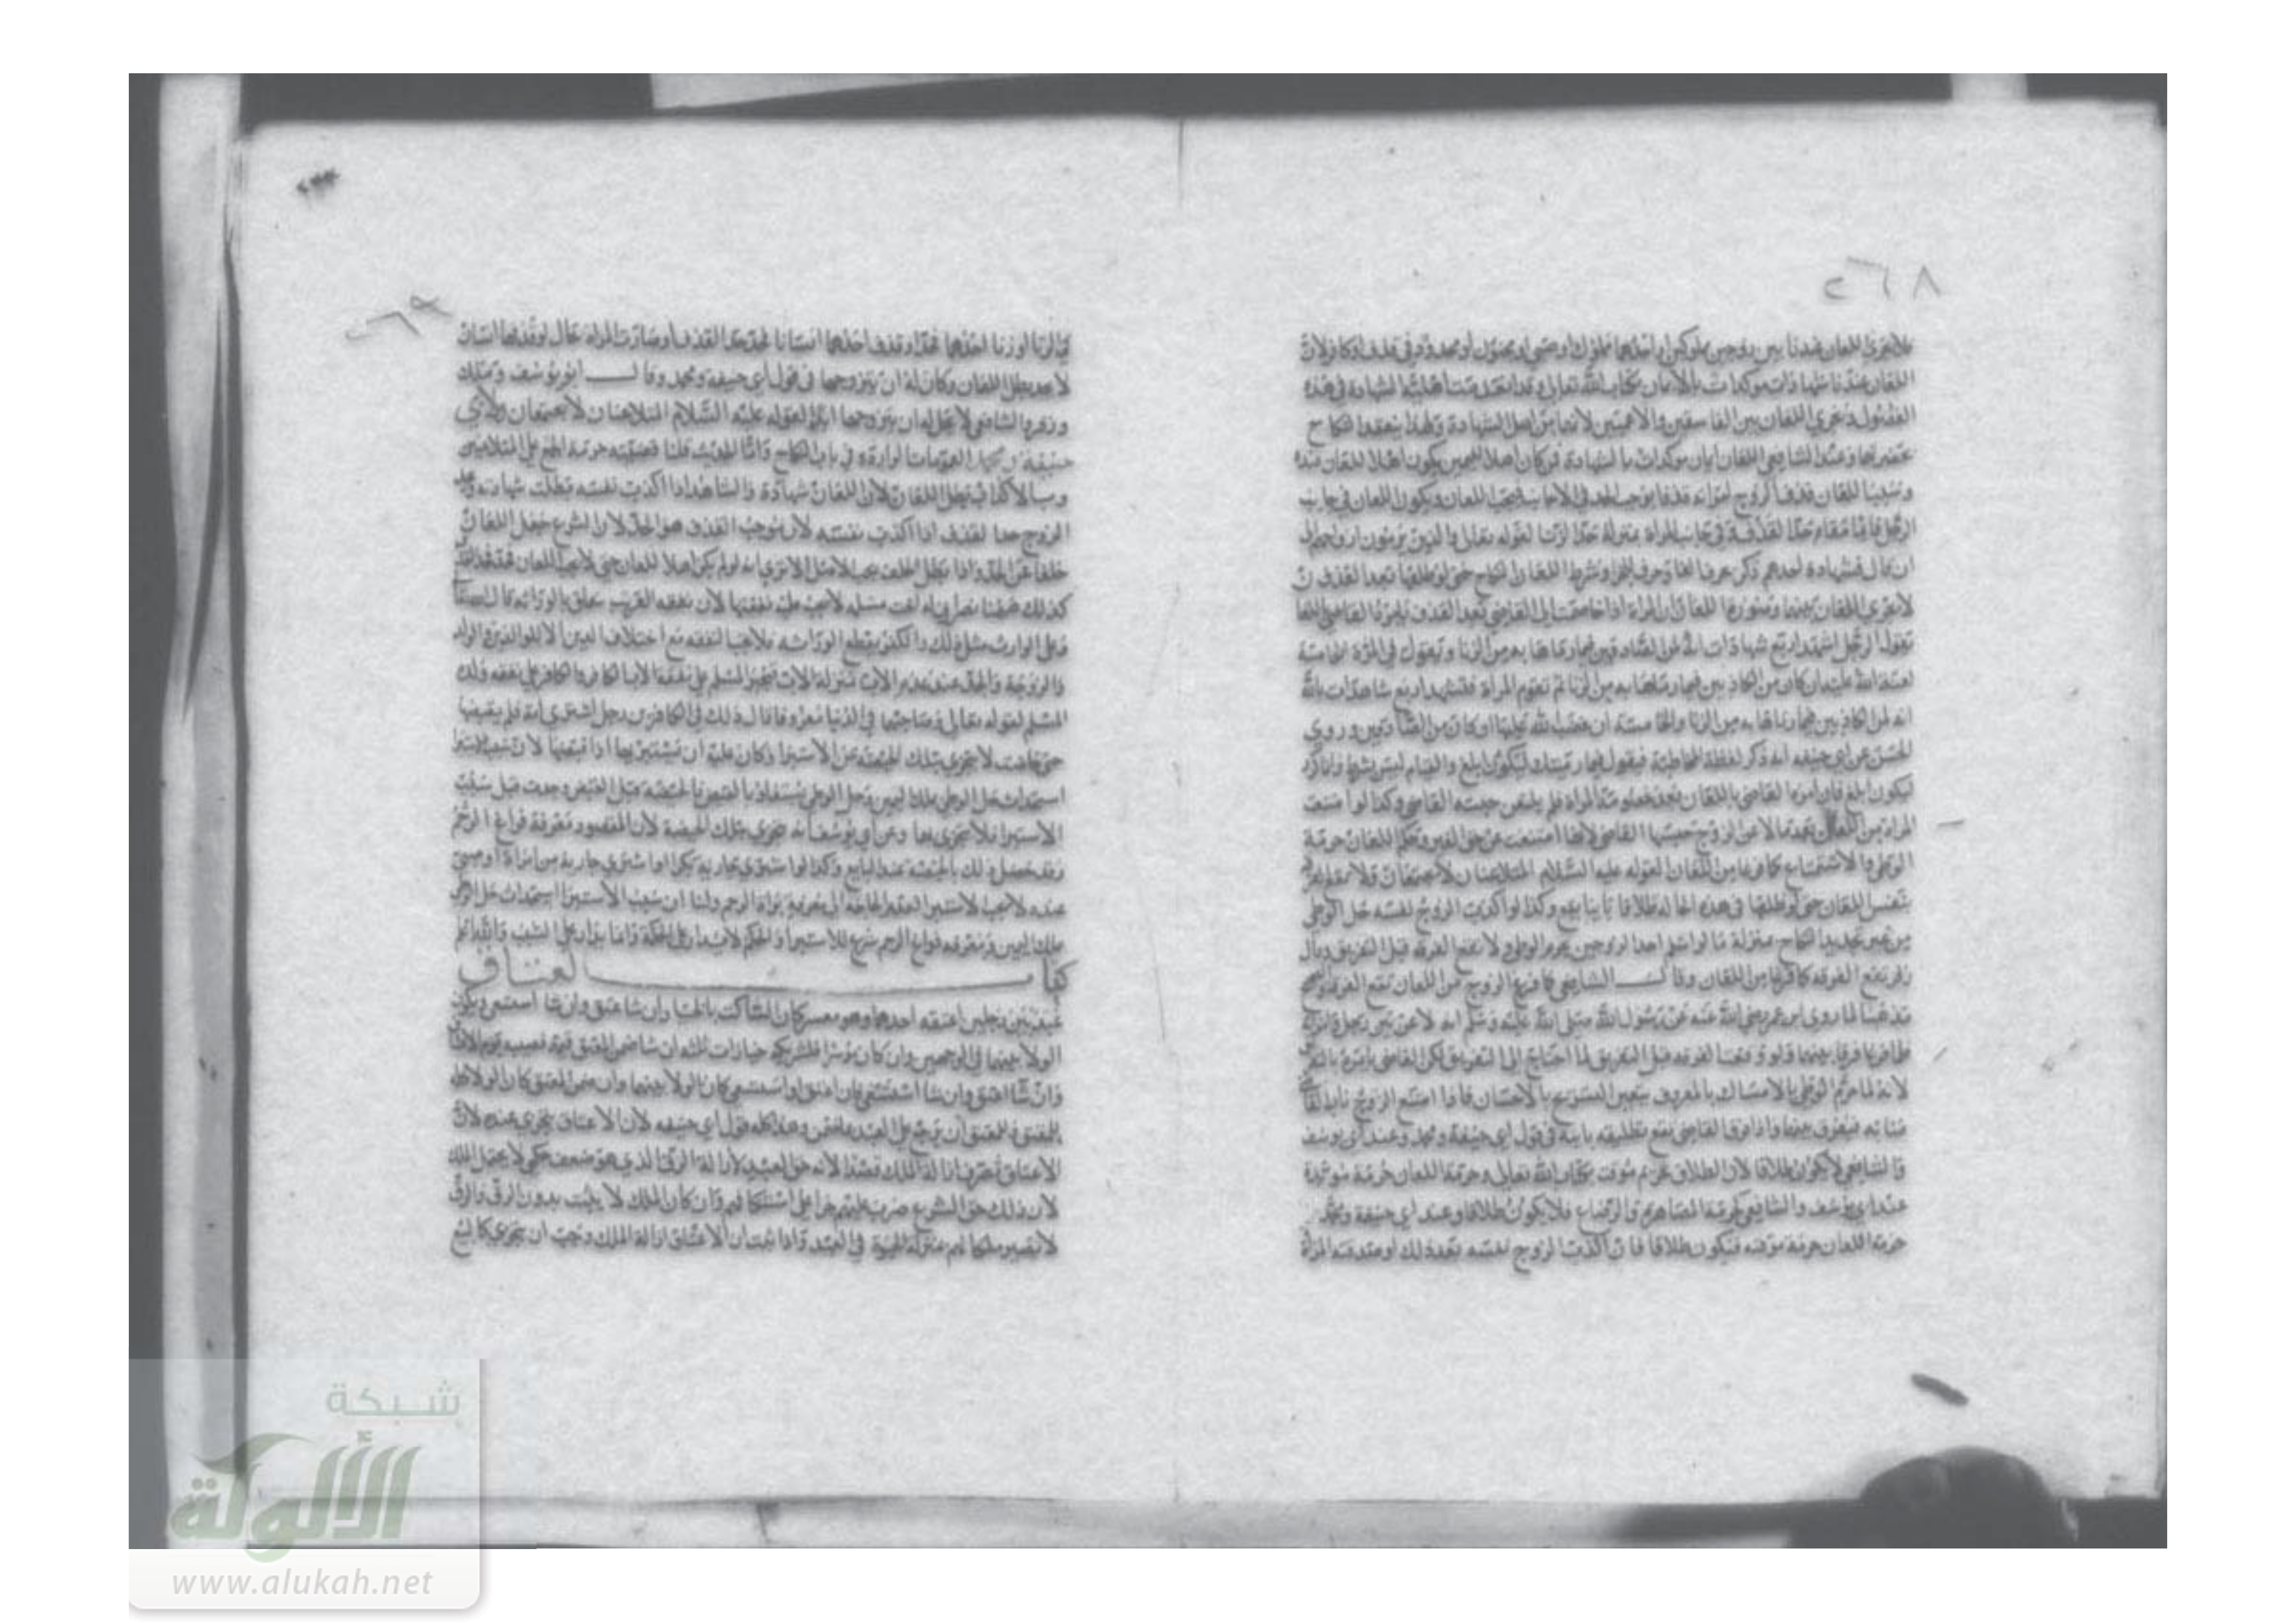 ٢٦٨
فلا يجري اللعان عندنا بين زوجين مملوكين او احدهما مملوك او صبي او مجنون او محدود في قذف او كافر لان
اللعان عندنا شهادات موكدات بالايمان بكتاب الله تعالى وقد انعدمت اهلية الشهادة في هذه
الفصول ويجري اللعان بين الفاسقين والاعميين لانهما من اهل الشهادة ولهذا ينعقد النكاح
بحضرتهما وعند الشافعي اللعان ايمان موكدات بالشهادة فمن كان اهلا لليمين يكون اهلا للعان عنده
وسبب اللعان قذف الزوج امراته قذفا يوجب الحد في الاجانب فيجب اللعان ويكون اللعان في جانب
الرجل قايما مقام حد القذف وفي جانب المراة بمنزلة حد الزنا لقوله تعالى والذين يرمون ازواجهم الى
ان قال فشهادة احدهم ذكر بحرف الفا وحرف الجزا وشرط اللعان النكاح حتى لو طلقها بعد القذف
لا يجري اللعان بينهما وصورة اللعان ان المراة اذا خاصمت الى القاضي بعد القذف يامر القاضي
يقول الرجل اشهد اربع شهادات بالله اني لمن الصادقين فيما رميتها به من الزنا ويقول في المرة الخامسة
لعنة الله عليه ان كان من الكاذبين فيما رماها به من الزنا ثم تقوم المراة فتشهد اربع شهادات بالله
انه لمن الكاذبين فيما رماها به من الزنا والخامسة ان غضب الله عليها ان كان من الصادقين وروي
الحسن عن ابي حنيفه انه ذكر لفظة المخاطبة فيقول فيما رميتك ليكون ابلغ والقيام ليس بشرط وانما ذكر
ليكون ابلغ فان امرهما القاضي باللعان بعد خصومة المراة فلم يلتعن حبسه القاضي وكذا لو امتنعت
المراة من اللعان بعدما لاعن الزوج حبسها القاضي لانها امتنعت عن حق الغير وحكم اللعان حرمة
الوطي والاستمتاع كما فرغا من اللعان لقوله عليه السلام المتلاعنان لا يجتمعان ولا تقع الفرقة
بنفس اللعان حتى لو طلقها في هذه الحالة طلاقا باينا يقع وكذا لو اكذب الزوج نفسه حل الوطي
من غير تجديد النكاح بمنزلة ما لو اسلم احد الزوجين يحرم الوطي ولا تقع الفرقة قبل التفريق وقال
زفر تقع الفرقة كما فرغا من اللعان وقال الشافعي كما فرغ الزوج من اللعان تقع الفرقة
مذهبنا لما روى ابن عمر رضي الله عنه عن رسول الله صلى الله عليه وسلم انه لاعن بين رجل وامراة
فلما فرغا فرق بينهما فلو وقعت الفرقة قبل التفريق لما احتاج الى التفريق لكن القاضي يامره بالتفريق
لانه لما حرم الوطي بالامساك بالمعروف يتعين التسريح بالاحسان فاذا امتنع الزوج ناب القاضي
منابه فيفرق بينهما واذا فرق القاضي تقع تطليقه باينة في قول ابي حنيفة ومحمد وعند ابي يوسف
والشافعي لا يكون طلاقا لان الطلاق تحريم موقت بكتاب الله تعالى وحرمة اللعان حرمة موبدة
عند ابي يوسف والشافعي كحرمة المصاهرة والرضاع فلا يكون طلاقا وعند ابي حنيفة ومحمد
حرمة اللعان حرمة موقتة فيكون طلاقا فان اكذب الزوج نفسه بعد ذلك او صدقته المراة
٢٦٩
في الزنا او زنا احدهما فحد او قذف احدهما انسانا فحد حد القذف او صارت المراة بحال لو قذفها انسان
لا يحد بطل اللعان وكان له ان يتزوجها في قول ابي حنيفه ومحمد وقال ابو يوسف ومالك
وزفر والشافعي لا يحل له ان يتزوجها ابدا لقوله عليه السلام المتلاعنان لا يجتمعان ولابي
حنيفة ومحمد العمومات الواردة في باب النكاح واما الحديث قلنا قضيته حرمة الجمع على المتلاعنين
وبالاكذاب بطل اللعان لان اللعان شهادة والشاهد اذا اكذب نفسه بطلت شهادته
الزوج حد القذف اذا اكذب نفسه لان موجب القذف هو الحد لان الشرع جعل اللعان
خلفا عن الحد واذا بطل الخلف يجب الاصل الا ترى انه لو لم يكن اهلا للعان حتى لا يجب اللعان
كذلك ههنا نصراني له اخت مسلمة لا يجب عليه نفقتها لان نفقة القريب تتعلق بالوراثة قال الله تعالى
وعلى الوارث مثل ذلك والكفر يقطع الوراثه فلا يجب النفقة مع اختلاف الدين الا للوالدين والولد
والزوجة والجد عند عدم الاب بمنزلة الاب فيجبر المسلم على نفقة الاب الكافر والكافر على نفقة ولده
المسلم لقوله تعالى وصاحبهما في الدنيا معروفا قال ذلك في الكافرين رجل اشترى امة فلم يقبضها
حتى حاضت لا يجزي بتلك الحيضة عن الاستبرا وكان عليه ان يستبريها اذا قبضها لان سبب الاستبرا
استحداث حل الوطي بملك اليمين وحل الوطي يستفاد بالقبض فالحيضة قبل القبض وجدت قبل سبب
الاستبرا فلا يجزي بها وعن ابي يوسف انه يجزي بتلك الحيضة لان المقصود معرفة فراغ الرحم
وقد حصل ذلك بالحيضة عند البايع وكذا لو اشترى جارية بكرا او اشترى جارية من امراة او صبي
عنده لا يجب الاستبرا لعدم الحاجة الى معرفة براة الرحم ولنا ان سبب الاستبرا استحداث حل الوطي
بملك اليمين ومعرفة فراغ الرحم حكمة للاستبرا والحكم لا يدار على الحكمة وانما يدار على السبب والله اعلم
كتاب العتاق
عبد بين رجلين اعتقه احدهما وهو معسر كان الشريك بالخيار ان شا عتق وان شا استسعى ويكون
الولا بينهما في الوجهين وان كان موسرا فلشريكه خيارات ثلثه ان شا ضمن المعتق قيمة نصيبه
وان شا اعتق وان شا استسعى فان اعتق او استسعى كان الولا بينهما وان ضمن المعتق كان الولا كله
للمعتق وللمعتق ان يرجع على العبد بما ضمن وهذا كله قول ابي حنيفه لان الاعتاق يتجزى عنده لان
الاعتاق تصرف ازالة الملك قصدا لانه حق العبد لا ازالة الرق الذي هو ضعف حكمي لا يحتمل الملك
لان ذلك حق الشرع ضرب عليهم جزا على استنكافهم وان كان الملك لا يثبت بدون الرق والرق
لا يصير ملكا لهم بمنزلة الحيوة في العبد واذا ثبت ان الاعتاق ازالة الملك وجب ان يتجزى كالبيع
شبكة
الألوكة
www.alukah.net